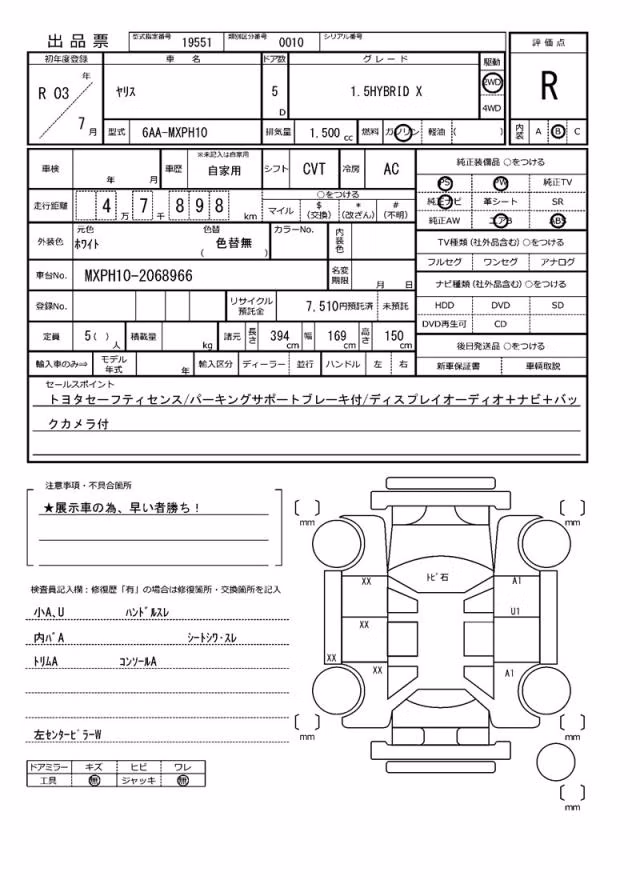 出品票 型式指定番号 19551 類別区分番号 0010 シリアル番号
初年度登録 車名 ドア数 グレード 駆動 評価点
R 03 年 7 月 ヤリス 5 D 1.5HYBRID X 2WD 4WD R
型式 6AA-MXPH10 排気量 1.500 cc 燃料 ガソリン 軽油 ( ) 内装 A B C
車検 年 月 車歴 ※未記入は自家用 自家用 シフト CVT 冷房 AC 純正装備品 ○をつける
PS PW 純正TV
走行距離 4 万 7 千 8 9 8 km ○をつける 純正ナビ 革シート SR
マイル $ (交換) * (改ざん) # (不明) 純正AW エアB ABS
外装色 元色 ホワイト 色替 ( 色替無 ) カラーNo. 内装色 TV種類 (社外品含む) ○をつける
フルセグ ワンセグ アナログ
車台No. MXPH10-2068966 名変期限 月 日 ナビ種類 (社外品含む) ○をつける
登録No. リサイクル預託金 7,510円預託済 未預託 HDD DVD SD
DVD再生可 CD
定員 5 ( ) 人 積載量 kg 諸元 長さ 394 cm 幅 169 cm 高さ 150 cm 後日発送品 ○をつける
輸入車のみ⇒ モデル年式 年 輸入区分 ディーラー 並行 ハンドル 左 右 新車保証書 車輌取説
セールスポイント
トヨタセーフティセンス/パーキングサポートブレーキ付/ディスプレイオーディオ+ナビ+バッ
クカメラ付
注意事項・不具合箇所
★展示車の為、早い者勝ち!
検査員記入欄:修復歴「有」の場合は修復箇所・交換箇所を記入
小A、U ハンドルスレ
内バA シートシワ・スレ
トリムA コンソールA
左センターピラーW
ドアミラー キズ ヒビ ワレ
工具 無 ジャッキ 無
[ ] mm [ ] mm
トビ石
XX A1
U1
XX
XX
XX A1
[ ] mm [ ] mm
[ ] mm